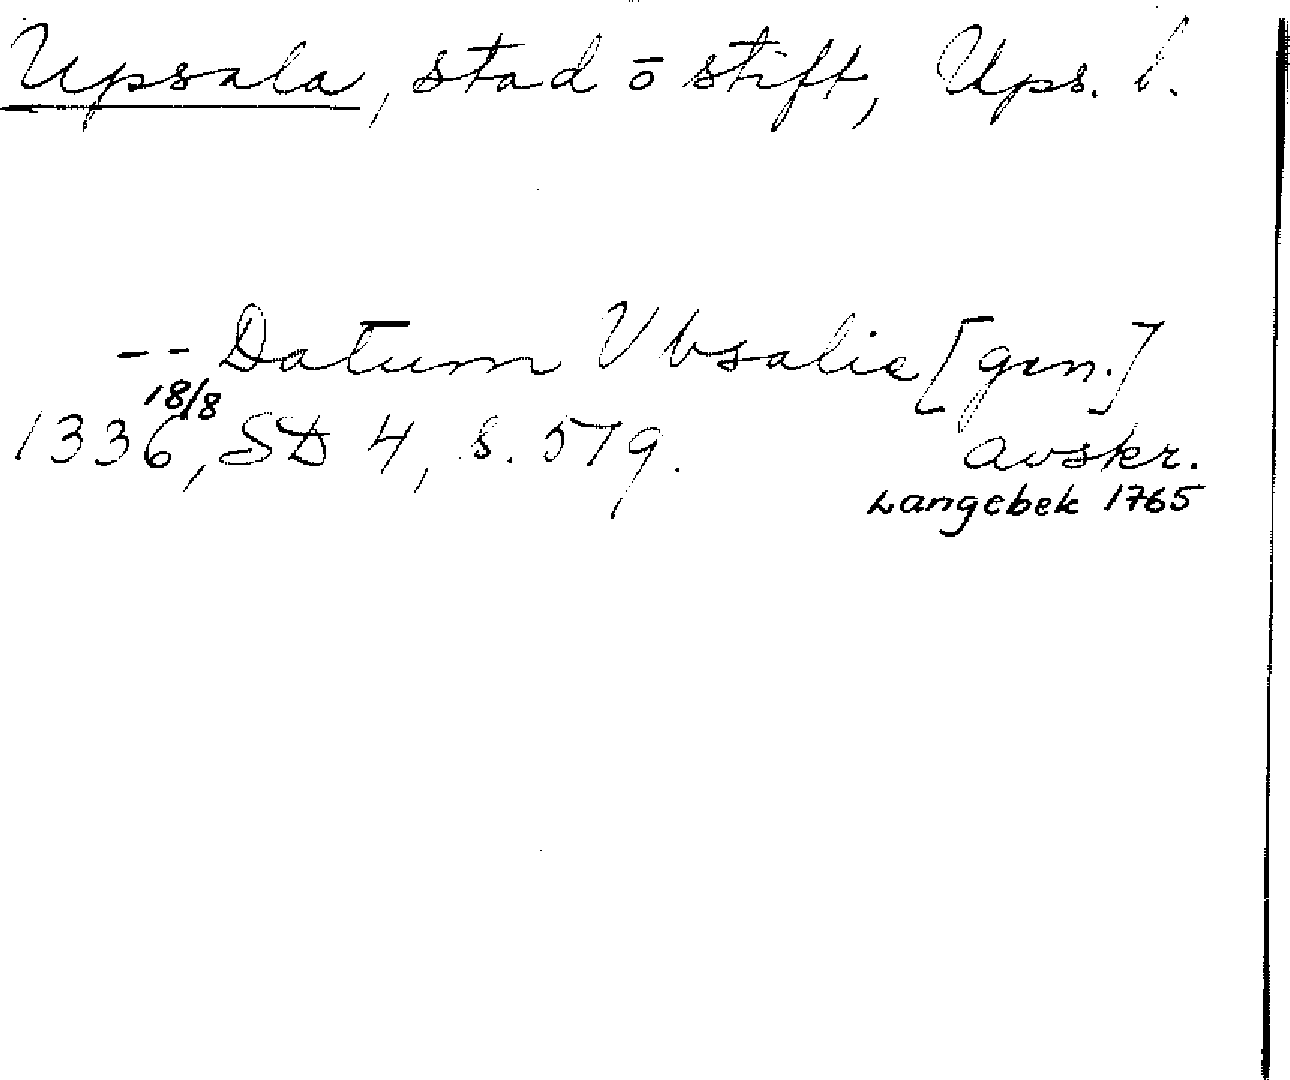 Upsala, stad ō stift, Ups. l.
-- Datum Vbsalie [gen.]
18/8
1336, SD 4, s. 579. avskr.
Langebek 1765